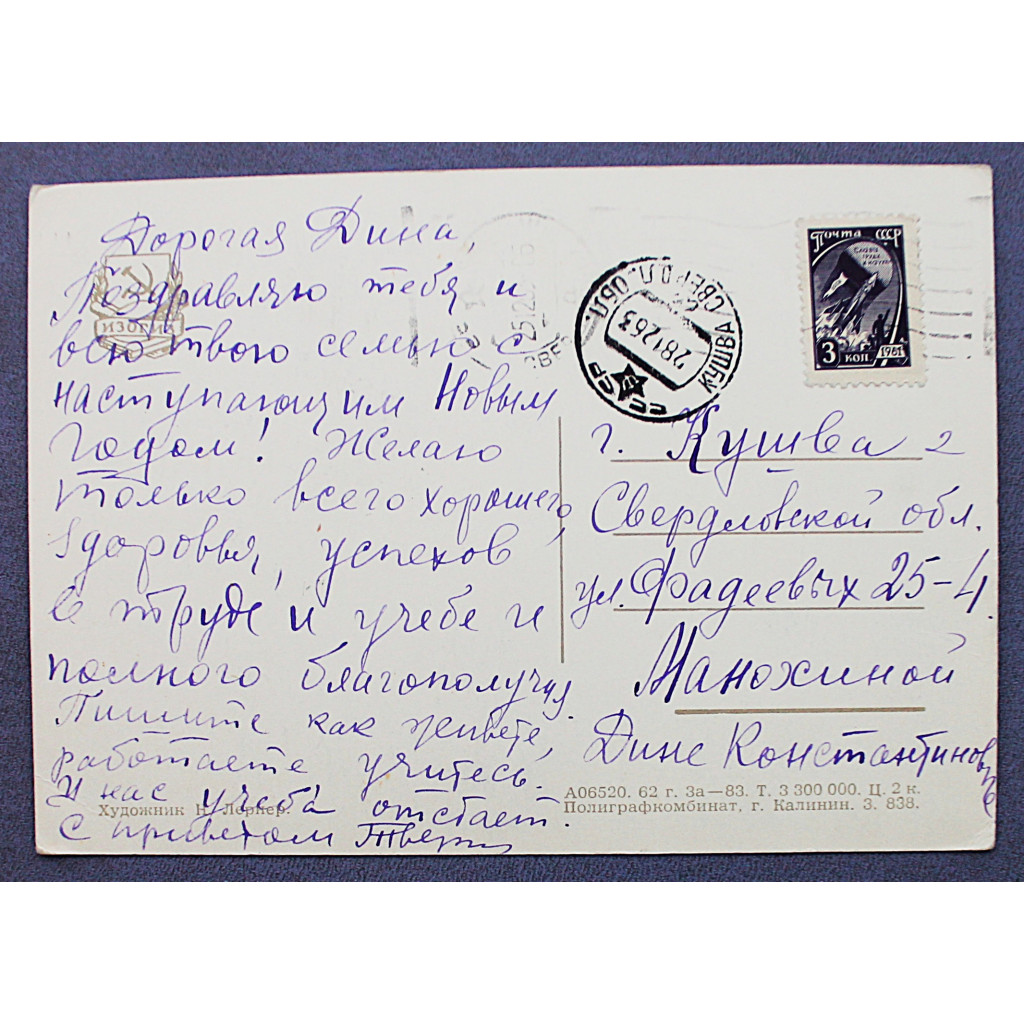 Дорогая Дина,
Поздравляю тебя и
всю твою семью с
наступающим Новым
годом! Желаю
только всего хорошего,
здоровья, успехов
в труде и учебе и
полного благополучия.
Пишите как живете,
работаете учитесь.
У нас учеба отстает.
С приветом
ИЗОГИЗ
Художник Н. Лернер.
ПОЧТА СССР
СЛАВА
ТРУДУ
И НАУКЕ
3 КОП.
1961
25 12
КУШВА СВЕРДЛ. ОБЛ.
28 12 63
СССР
г. Кушва 2
Свердловской обл.
ул. Фадеевых 25-4.
Манохиной
Дине Константиновне
А06520. 62 г. За—83. Т. 3 300 000. Ц. 2 к.
Полиграфкомбинат, г. Калинин. З. 838.